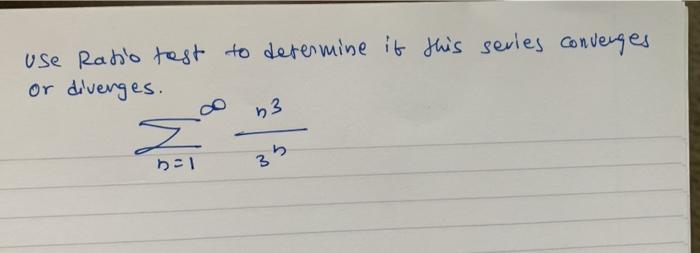 Use Ratio test to determine if this series converges
or diverges.
∞ n3
∑ —
n=1 3n